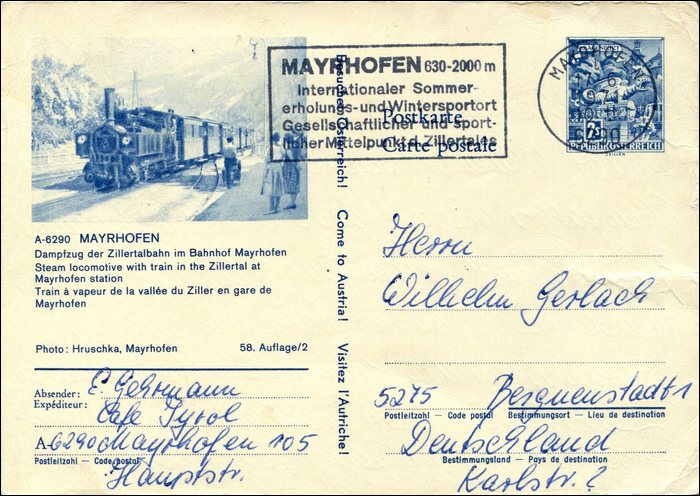 MAYRHOFEN 630-2000 m
Internationaler Sommer-
erholungs-und Wintersportort
Gesellschaftlicher und sport-
licher Mittelpunkt d. Zillertales
Postkarte
Carte postale
MAYRHOFEN
6290
REPUBLIK ÖSTERREICH
ZEILLER
Besuchet Österreich! Come to Austria! Visitez l'Autriche!
A-6290 MAYRHOFEN
Dampfzug der Zillertalbahn im Bahnhof Mayrhofen
Steam locomotive with train in the Zillertal at
Mayrhofen station
Train à vapeur de la vallée du Ziller en gare de
Mayrhofen
Photo: Hruschka, Mayrhofen 58. Auflage/2
Absender: E. Gehrmann
Expéditeur: Cafe Tyrol
A-6290 Mayrhofen 105
Postleitzahl — Code postal
Hauptstr.
Herrn
Wilhelm Gerlach
5275 Bergneustadt 1
Postleitzahl — Code postal Bestimmungsort — Lieu de destination
Deutschland
Bestimmungsland — Pays de destination
Karlstr. 2